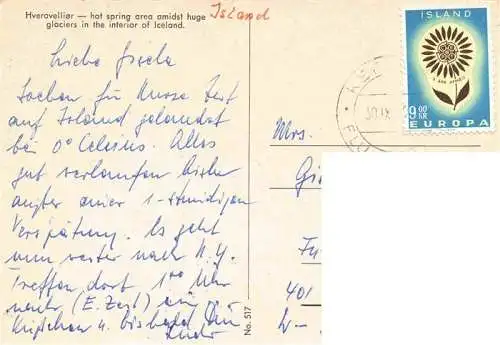 Hveravellir — hot spring area amidst huge
glaciers in the interior of Iceland.
Island
Liebe Gisela
Soeben für kurze Zeit
auf Island gelandet
bei 0° Celsius. Alles
gut verlaufen bisher
außer einer 1-stündigen
Verspätung. Es geht
nun weiter nach N.Y.
Treffen dort 1⁰⁰ Uhr
nachts (E. Zeit) ein
u. bis bald Dein
No. 517
Mrs.
401
ÍSLAND
9.00
KR
EUROPA